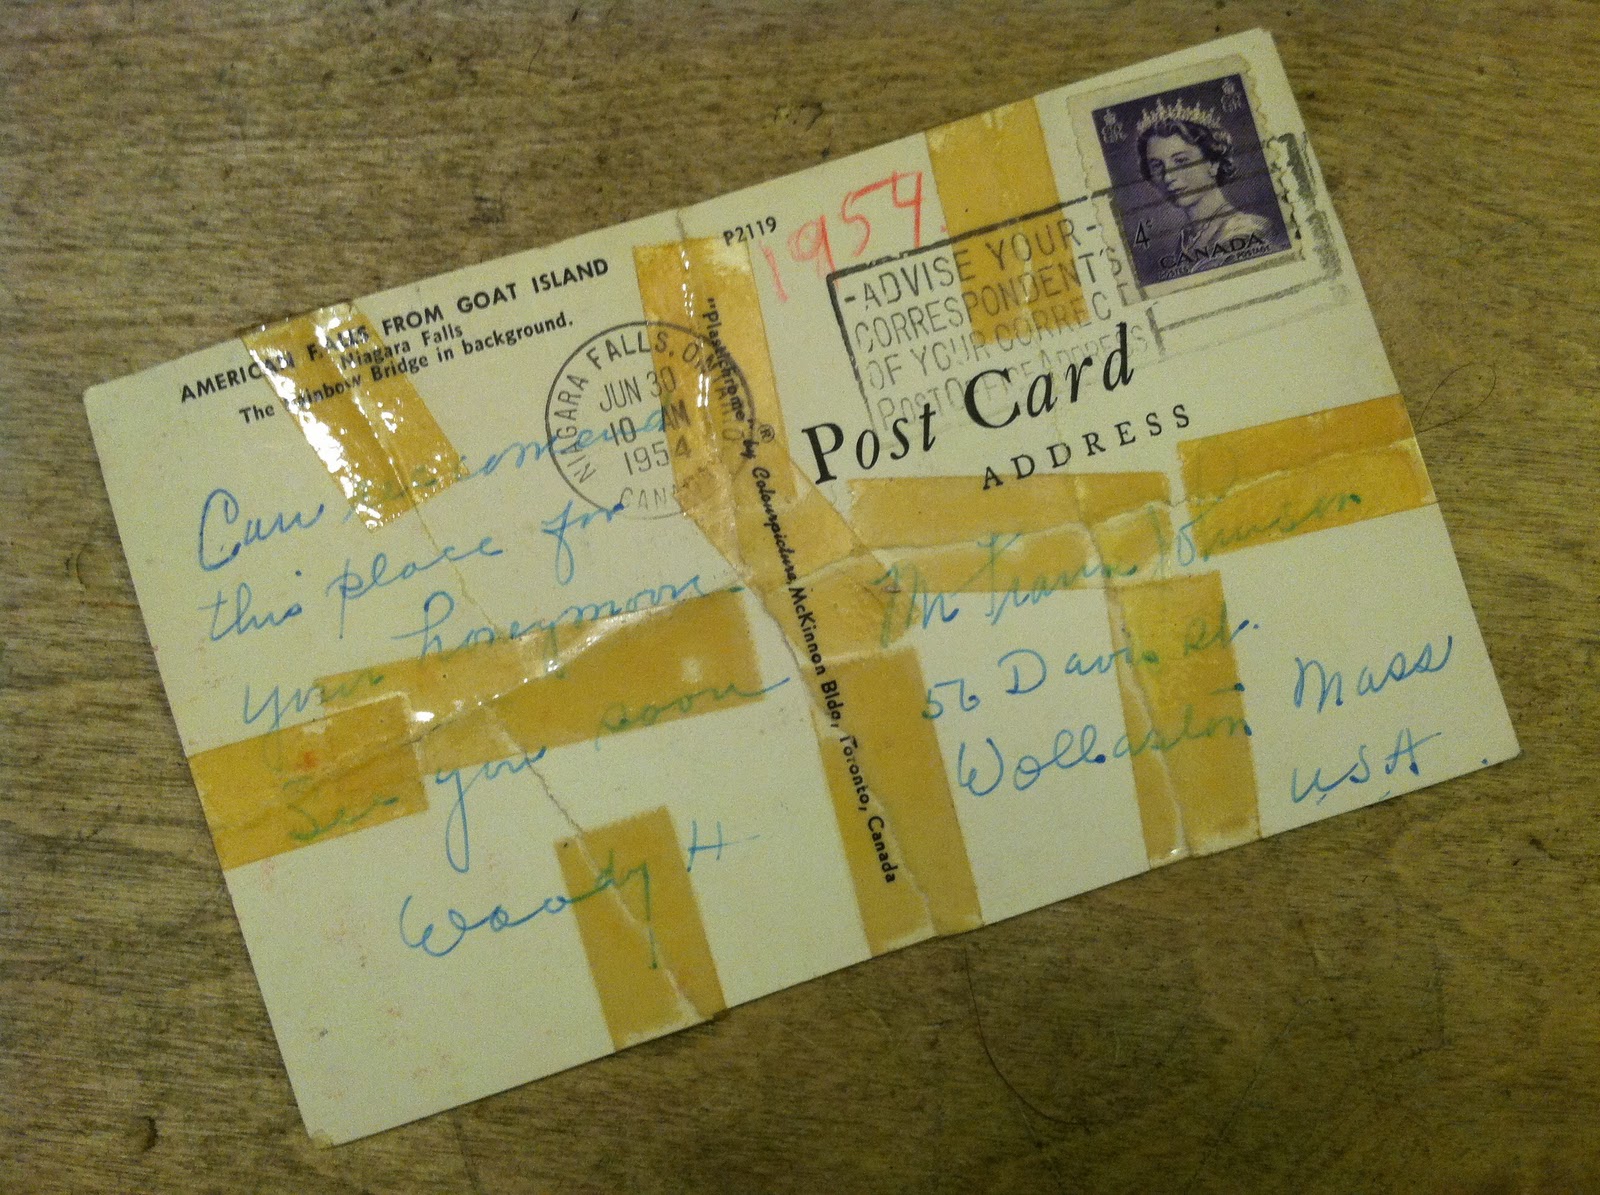 AMERICAN FALLS FROM GOAT ISLAND
Niagara Falls
The Rainbow Bridge in background.
P2119
1954.
NIAGARA FALLS, ONTARIO
JUN 30
10 AM
1954
CANADA
-ADVISE YOUR-
CORRESPONDENT'S
OF YOUR CORRECT
POST OFFICE ADDRESS
4¢
CANADA
POSTES POSTAGE
Can recommend
this place for
your honeymoon -
See you soon
Woody H
"Plastichrome" ® by Colourpicture, McKinnon Bldg, Toronto, Canada
Post Card
ADDRESS
Mr Johnson
56 Davis st.
Wollaston Mass
USA.